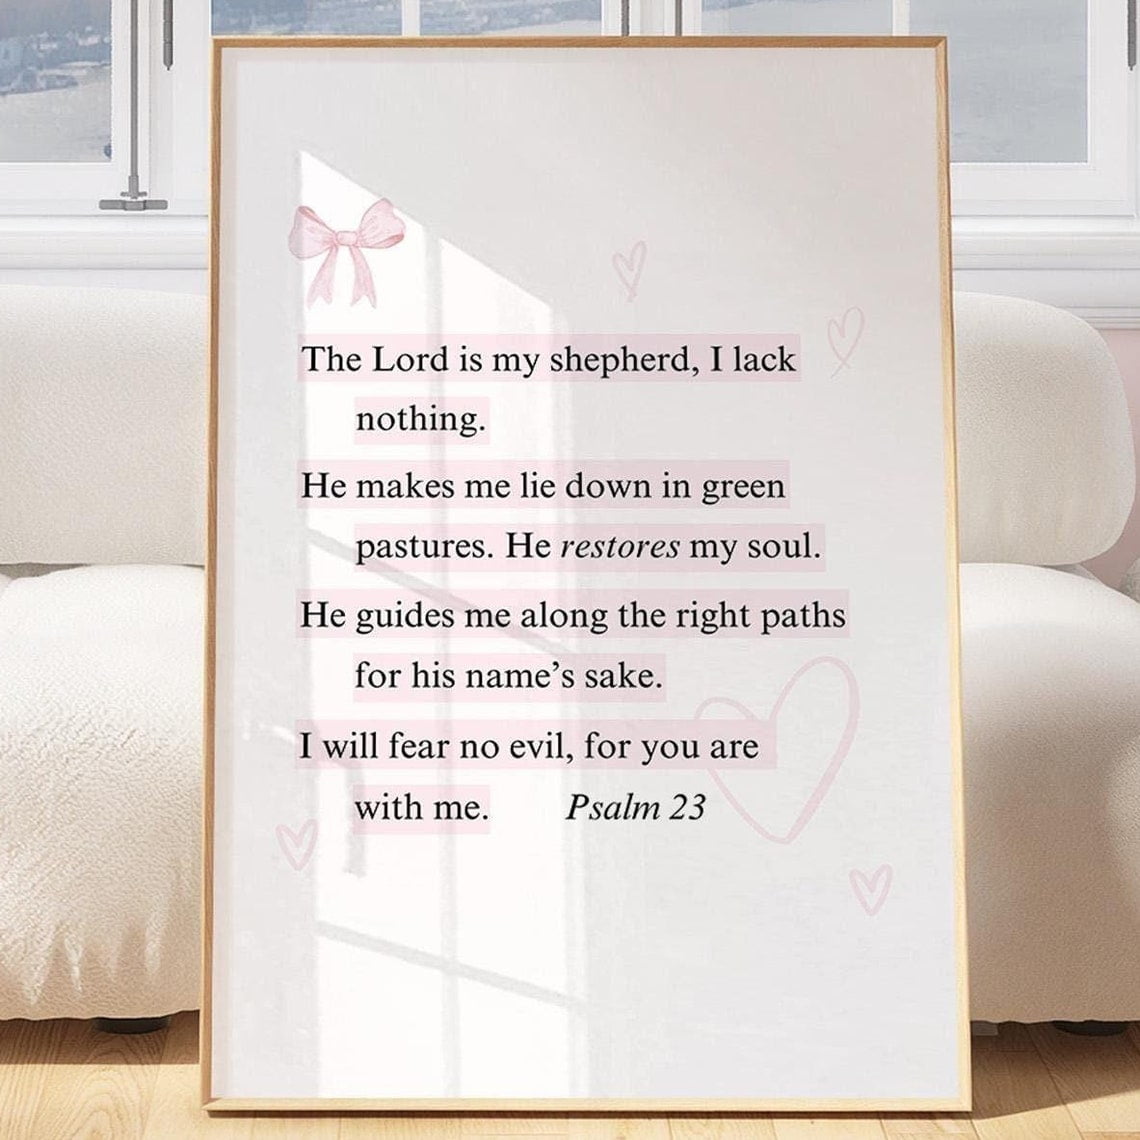 The Lord is my shepherd, I lack
nothing.
He makes me lie down in green
pastures. He restores my soul.
He guides me along the right paths
for his name’s sake.
I will fear no evil, for you are
with me. Psalm 23